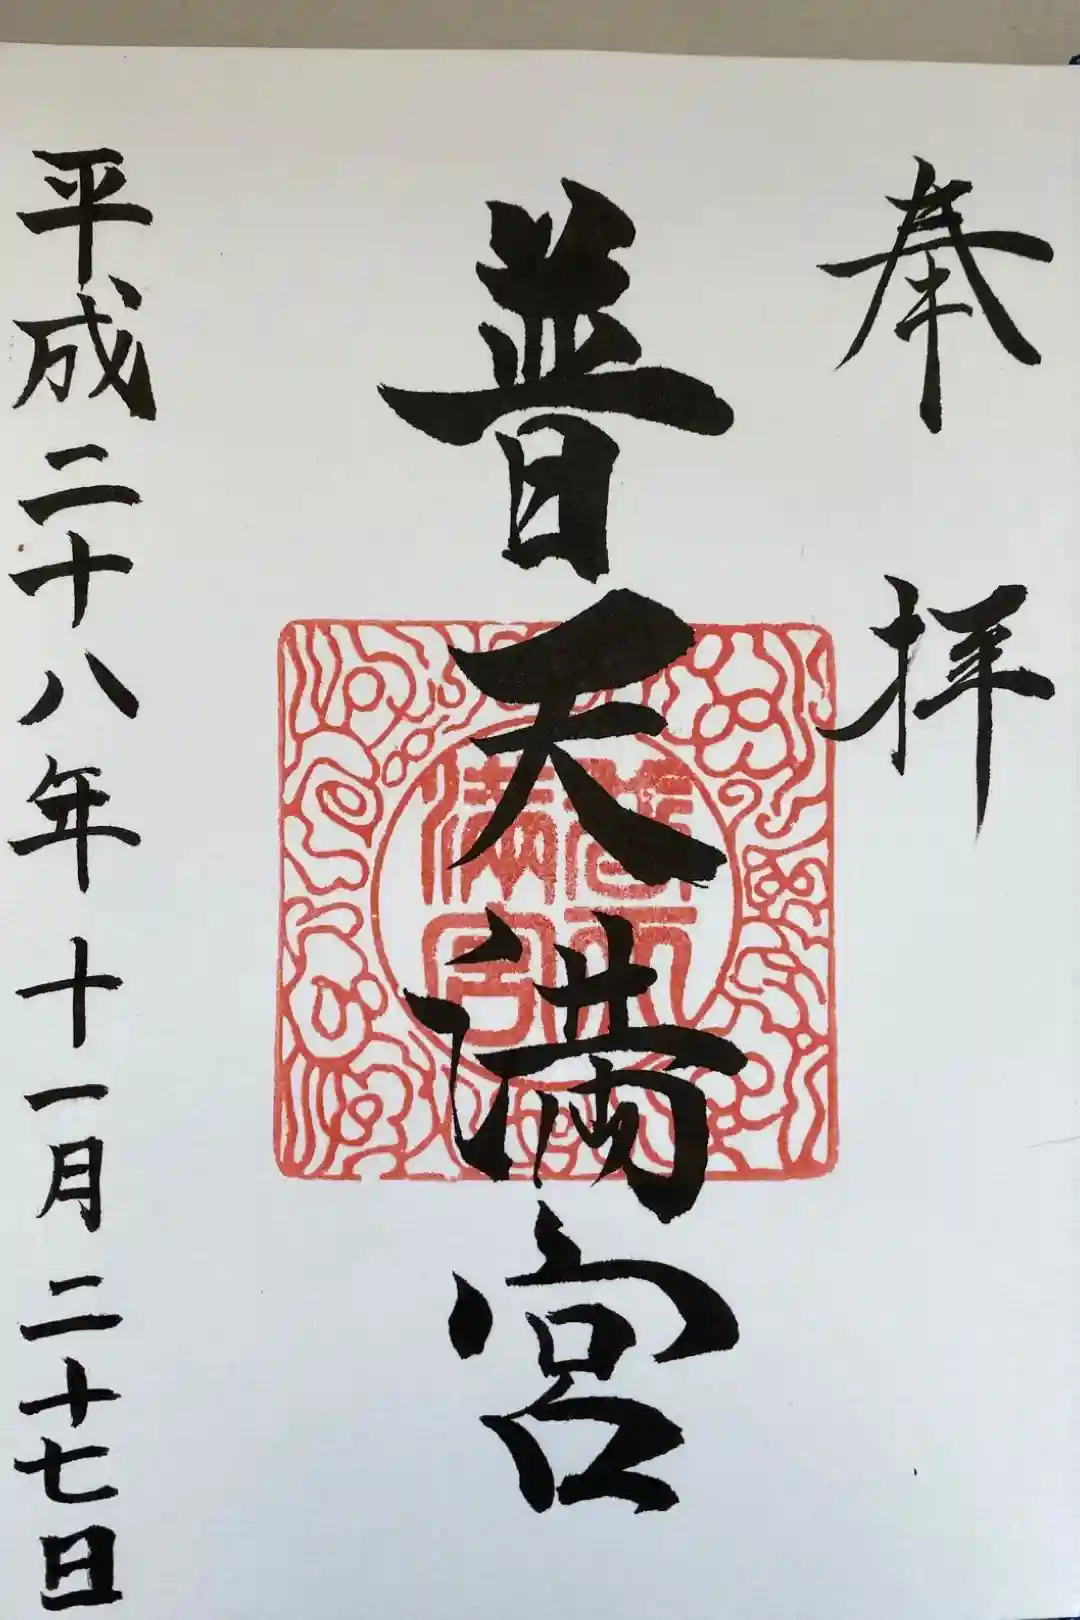 奉拝
普天満宮
普天満宮
平成二十八年十一月二十七日